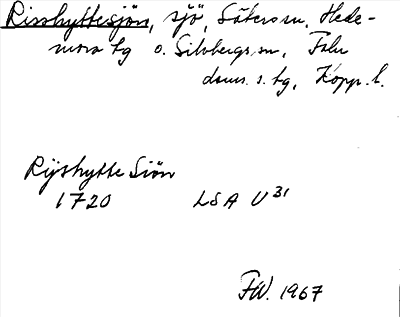 Risshyttesjön, sjö, Säters sn, Hede-
mora tg o. Silvbergs sn, Falu
doms. s. tg, Kopp. l.
Rijshytte Siön
1720 LSA U 31
FW. 1967